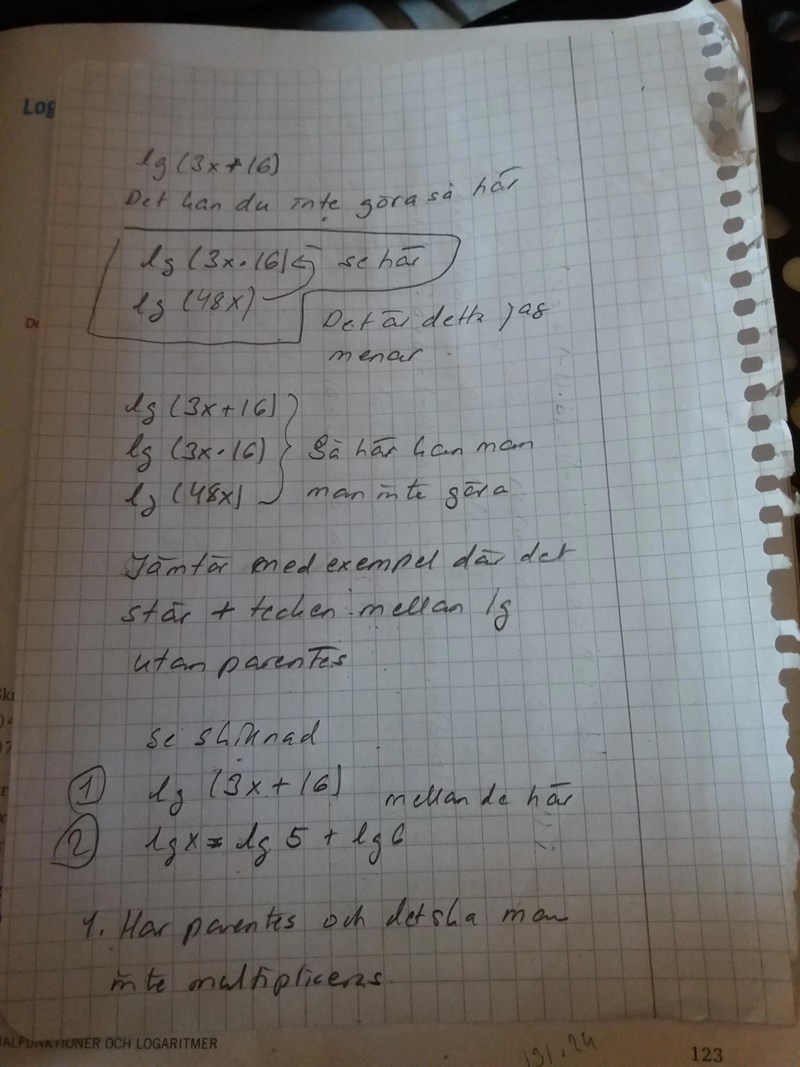 Log
lg (3x+16)
Det kan du inte göra så här
lg (3x·16) se här
lg (48x)
Det är detta jag
menar
lg (3x+16)
lg (3x·16) Så här kan man
lg (48x) man inte göra
Jämför med exempel där det
står + tecken mellan lg
utan parentes
se skillnad
1 lg (3x+16) mellan de här
2 lgx = lg 5 + lg 6
1. Har parentes och det ska man
inte multipliceras.
ALFUNKTIONER OCH LOGARITMER
131.24
123